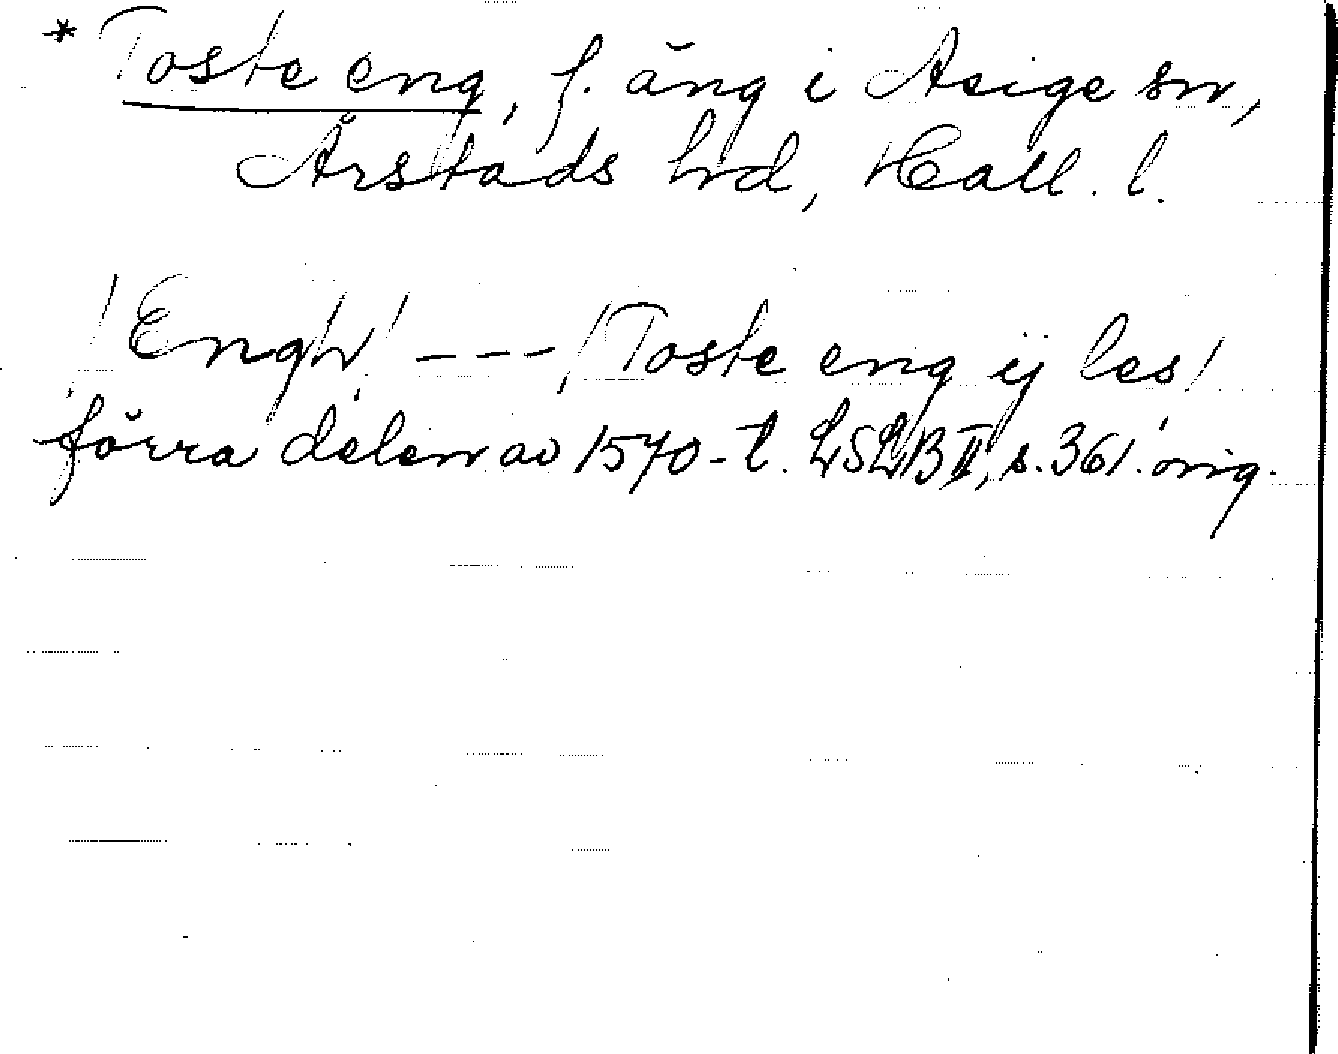 * Toste eng, f. äng i Asige sn,
Årstads hd, Hall. l.
/Engh/ --- /Toste eng ij les/
förra delen av 1570-t. LSLB II, s. 361. orig.